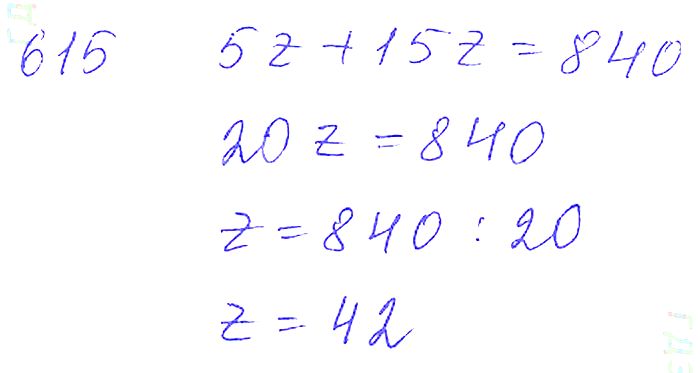 615 5z + 15z = 840
20z = 840
z = 840 : 20
z = 42